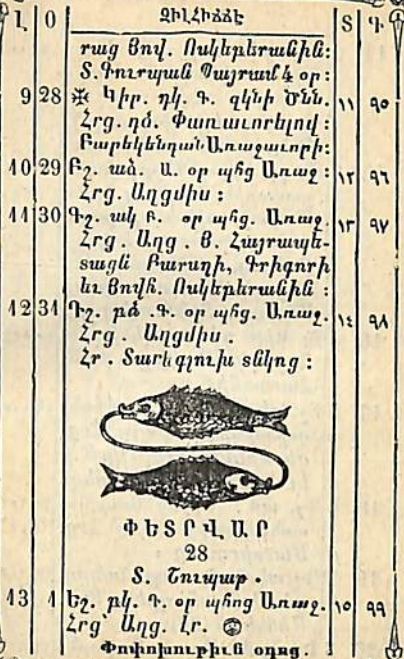 Լ Օ ԶԻԼՀԻՃՃԷ Տ Գ
րաց Յով. Ոսկեբերանին։
Տ. Գուրպան Պայրամ 4 օր։
9 28 Կիր. դկ. Գ. զկնի Ծնն. ११ ९०
Հրց. դձ. Փառաւորելով։
Բարեկենդան Առաջաւորի։
10 29 Բշ. աձ. Ա. օր պհց Առաջ։ १२
Հրց. Աղցմիս։
11 30 Գշ. ակ Բ. օր պհց. Առաջ. १३
Հրց. Աղց. Յ. Հայրապե-
տացն Բարսղի, Գրիգորի
եւ Յովհ. Ոսկեբերանին։
12 31 Դշ. բձ. Գ. օր պհց. Առաջ. १४
Հրց. Աղցմիս.
Հր. Տարեգլուխ տնկոց։
ՓԵՏՐՎԱՐ
28
Տ. Շուպաթ.
13 1 Եշ. բկ. Դ. օր պհոց Առաջ.
Հրց Աղց. Լր.
Փոփոխութիւն օդոց. 3